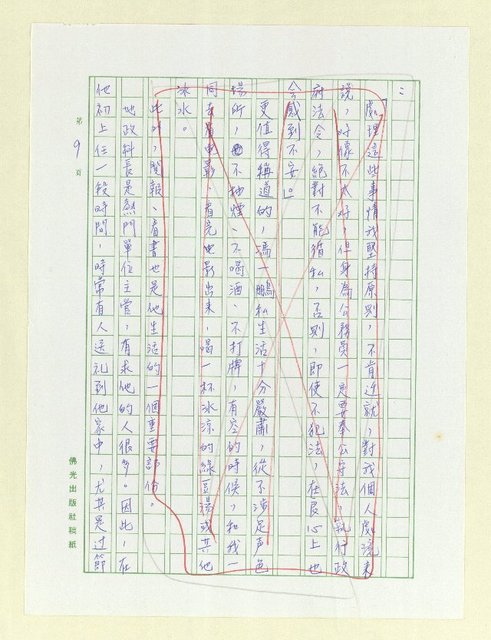 ：
處理這些事情我堅持原則，不肯近就，對我個人處境來
說，好像不太好，但身為公務員一定要奉公守法，執行政
府法令，絕對不能循私，否則，即使不犯法，在良心上也
會感到不安」。
更值得稱道的，馮一鵬私生活十分嚴肅，從不涉足声色
場所，不抽煙、不喝酒、不打牌，有空的時候，和我一
同去看電影，看完電影出來，喝一杯冰涼的綠豆湯或其他
冰水。
此外，閱報、看書也是他生活的一個重要部份。
地政科長是熱門單位主管，有求他的人很多。因此，在
他初上任一段時間，時常有人送礼到他家中，尤其是过節
第9頁
佛光出版社稿紙